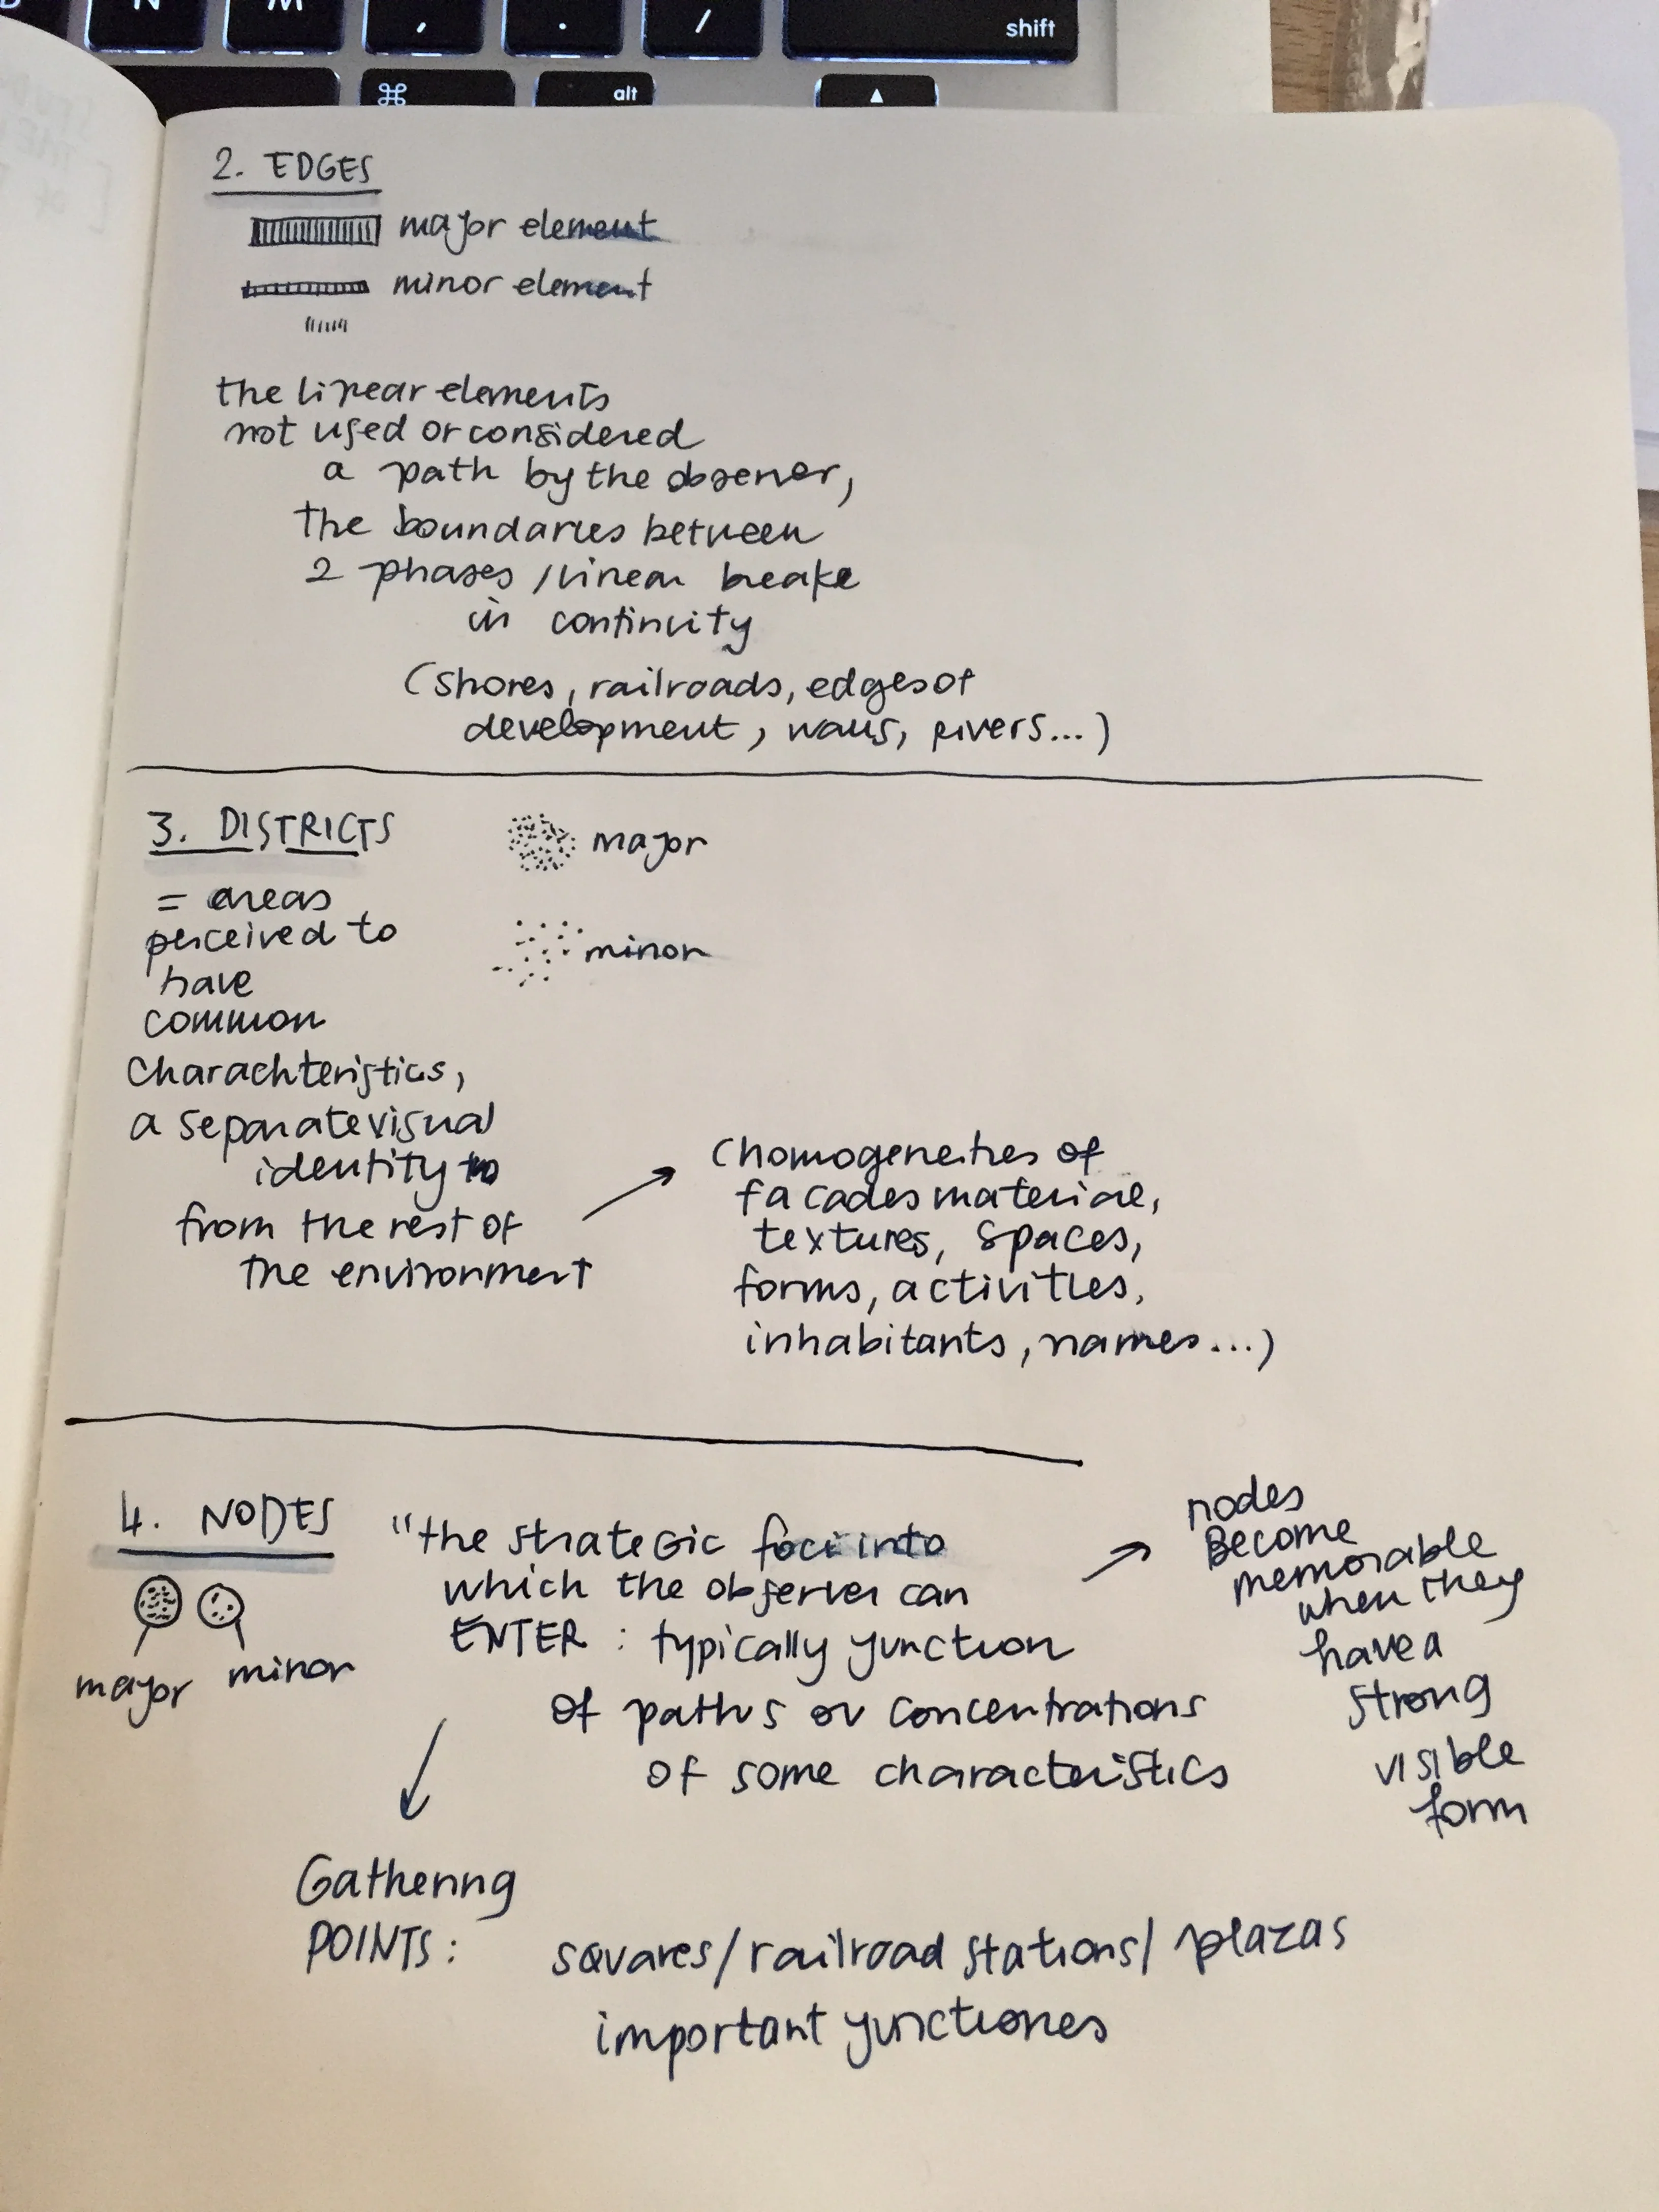 N M , . / shift
⌘ alt ▲
2. EDGES
major element
minor element
the linear elements
not used or considered
a path by the observer,
the boundaries between
2 phases / linear breake
in continuity
(shores, railroads, edges of
development, walls, rivers...)
3. DISTRICTS
major
= areas
perceived to
minor
have
common
charachteristics,
a separate visual
identity to
from the rest of
the environment
(homogeneities of
facades material,
textures, spaces,
forms, activities,
inhabitants, names...)
4. NODES
major minor
"the strateGic foci into
which the observer can
ENTER : typically yunction
of paths or concentrations
of some characteristics
nodes
Become
memorable
when they
have a
strong
visible
form
Gathering
POINTS: squares/railroad stations/ plazas
important yunctiones